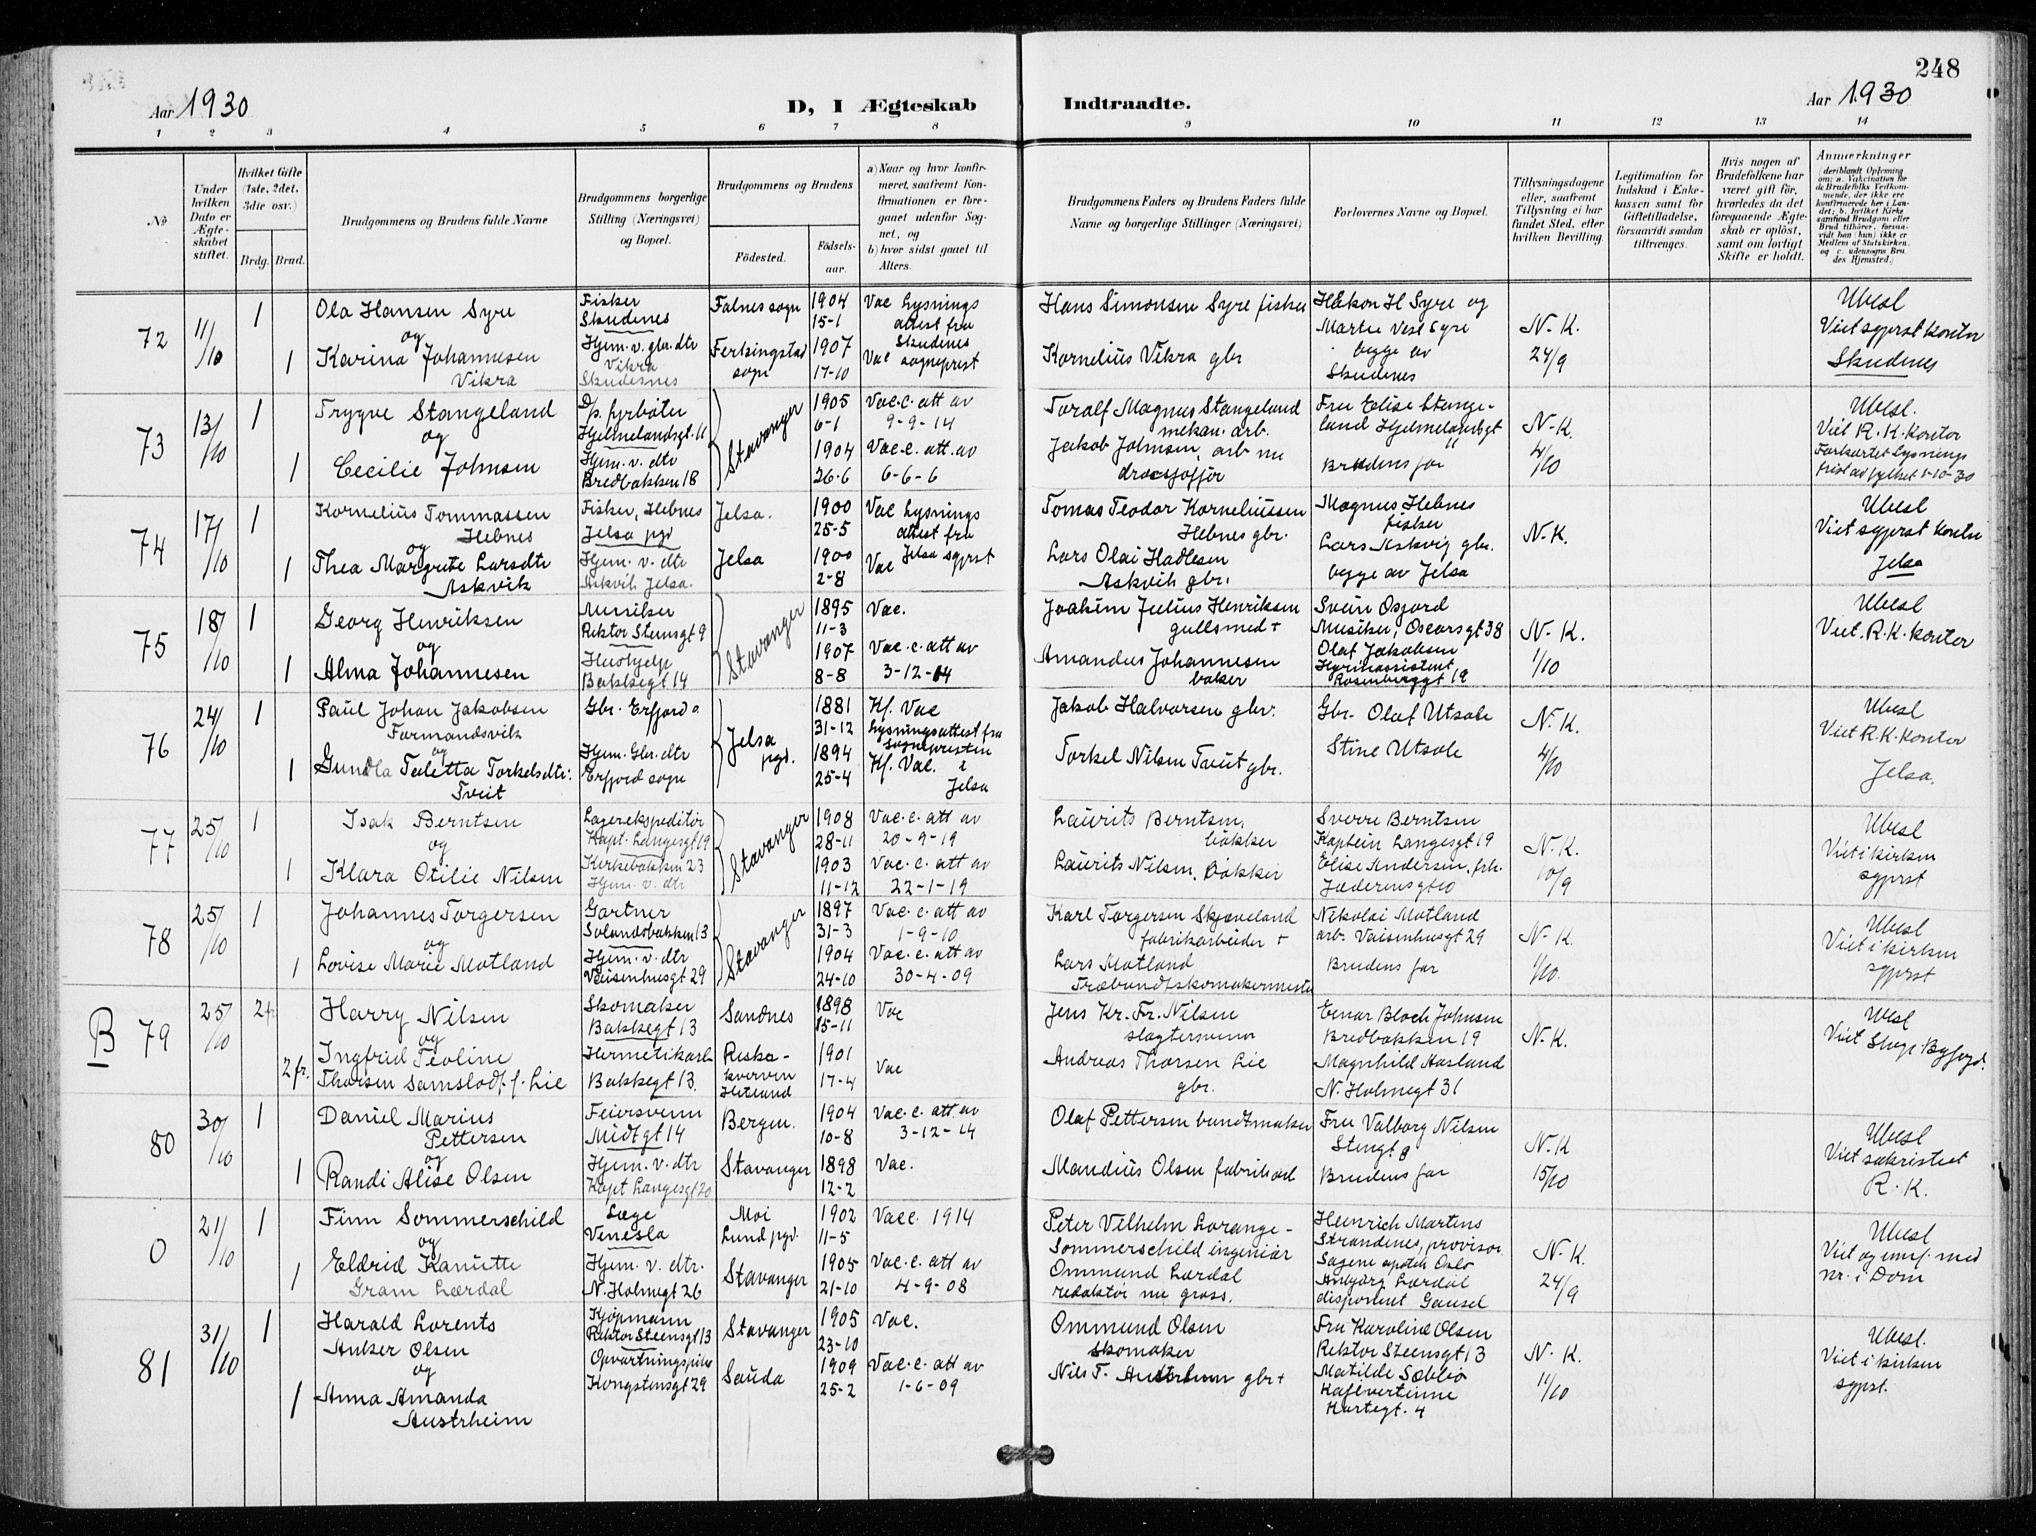 248
Aar 1930
D, I Ægteskab
Indtraadte.
Aar 1930
1 2 3 4 5 6 7 8 9 10 11 12 13 14
No
Under hvilken Dato er Ægteskabet stiftet.
Hvilket Gifte (1ste, 2det, 3die osv.)
Brdg. Brud.
Brudgommens og Brudens fulde Navne
Brudgommens borgerlige Stilling (Næringsvei) og Bopæl.
Brudgommens og Brudens
Fødested.
Fødselsaar.
a) Naar og hvor konfirmeret, saafremt Konfirmationen er foregaaet udenfor Sognet, og
b) hvor sidst gaaet til Alters.
Brudgommens Faders og Brudens Faders fulde Navne og borgerlige Stillinger (Næringsvei)
Forlovernes Navne og Bopæl.
Tillysningsdagene eller, saafremt Tillysning ei har fundet Sted, efter hvilken Bevilling.
Legitimation for Indskud i Enkekassen samt for Giftetilladelse, forsaavidt saadan tiltrænges.
Hvis nogen af Brudefolkene har været gift før, hvorledes da det foregaaende Ægteskab er opløst, samt om lovligt Skifte er holdt.
Anmærkninger
72
11/10
1
Ola Hansen Syre
og
1
Karina Johannesen
Vikra
Fisker
Skudenes
Hjem. v. gbr. dtr
Vikra
Skudesnes
Falnes sogn
Ferkingstad
sogn
1904
15-1
1907
17-10
Vac Lysnings
attest fra
Skudenes
Vac sogneprest
Hans Simonsen Syre fisker
Kornelius Vikra gbr
Håkon H Syre og
Martin Vest Syre
begge av
Skudenes
N.K.
24/9
Ubesl
Viet sgprst kontor
Skudenes
73
13/10
1
Trygve Stangeland
og
1
Cecilie Johnsen
D/p. fyrbøter
Hjelmelandsgt. 11
Hjem. v. dtr
Bredbakken 18
Stavanger
1905
6-1
1904
26-6
Vac. c. att av
9-9-14
Vac. c. att. av
6-6-6
Toralf Magnus Stangeland
mekan. arb.
Jakob Johnsen, arb nu
drosjofør
Fru Elise Stange-
land Hjelmelandsgt
11
Brudens far
N.K.
4/10
Ubesl.
Viet R.K. kontor
Forkortet lysnings
frist av fylket 1-10-30
74
17/10
1
Kornelius Tommassen
Hebnes
og
1
Thea Margrete Larsdtr
Askvik
Fisker, Hebnes
Jelsa pgd
Hjem. v. dtr
Askvik Jelsa.
Jelsa.
Jelsa
1900
25-5
1900
2-8
Vac Lysnings
attest fra
Jelsa sgprst
Vac
Tomas Teodor Korneliussen
Hebnes gbr.
Lars Olai Hadlesen
Askvik gbr.
Magnus Hebnes
fisker
Lars Askvig gbr.
begge av Jelsa
N.K.
Ubesl
Viet sgprst kontor
Jelsa
75
18/10
1
Georg Henriksen
og
1
Alma Johannesen
Musiker
Rektor Steensgt 9
Hushjelp
Bakkegt 14
Stavanger
1895
11-3
1907
8-8
Vac.
Vac. c. att av
3-12-14
Joakim Julius Henriksen
gullsmed +
Amandus Johannesen
baker
Svein Osjord
Musiker, Oscarsgt 38
Olaf Jakobsen
Rosenberggt 19
N.K.
1/10
Ubesl
Viet. R.K. kontor
76
24/10
1
Paul Johan Jakobsen
Formandsvik
og
1
Gundla Teletta Torkelsdtr.
Tveit
Gbr. Erfjord
Hjem. Gbr. dtr
Erfjord sogn
Jelsa
pgd.
1881
31-12
1894
25-4
Kf. Vac
Lysningsattest fra
sognepresten
Kf. Vac. i
Jelsa
Jakob Halvorsen gbr.
Torkel Nilsen Tveit gbr.
Gbr. Olaf Utsole
Stine Utsole
N.K.
4/10
Ubesl
Viet R.K. kontor
Jelsa.
77
25/10
1
Isak Berntsen
og
1
Klara Otilie Nilsen
Lagerekspeditør
Kapt. Langesgt 19
Kirkebakken 23
Hjem. v. dtr
Stavanger
1908
28-11
1903
11-12
Vac. c. att av
20-9-19
Vac. c. att av
22-1-19
Laurits Berntsen,
bøkker
Laurits Nilsen, Bøkker
Sverre Berntsen
Kaptein Langesgt 19
Elise Andersen, frk.
Jæderensgt 10
N.K.
10/9
Ubesl
Viet i kirken
sgprst
78
25/10
1
Johannes Torgersen
og
1
Lovise Marie Motland
Gartner
Solandsbakken 13
Hjem. v. dtr
Vaisenhusgt 29
Stavanger
1897
31-3
1904
24-10
Vac. c. att av
1-9-10
Vac. c. att av
30-4-09
Karl Torgersen Skjæveland
fabrikarbeider +
Lars Motland
Træbundtskomakermester
Nikolai Motland
arb. Vaisenhusgt 29
Brudens far
N.K.
1/10.
Ubesl
Viet i kirken
sgprst
B 79
25/10
2 fr
Harry Nilsen
og
2 fr.
Ingfrid Teoline
Thorsen Samslodt f. Lie
Skomaker
Bakkegt 13
Hermetikarb
Bakkegt 13.
Sandnes
Riska-
Hetland
1898
15-11
1901
17-4
Vac
Vac
Jens Kr. Fr. Nilsen
slagtersvenn
Andreas Thorsen Lie
gbr.
Einar Bloch Johnsen
Bredbakken 19
Magnhild Aasland
N. Holmegt 31
N.K.
Ubesl
Viet Stvgr. Byfogd.
80
30/10
1
Daniel Marius
Pettersen
og
1
Randi Alise Olsen
Feiersvenn
Midtgt 14
Hjem. v. dtr
Kapt Langesgt 20
Bergen.
Stavanger
1904
10-8
1898
12-2
Vac. c. att. av
3-12-14
Vac.
Olaf Pettersen bundtmaker
Mandius Olsen fabrik arb
Fru Valborg Nilsen
Stengt 8
Brudens far
N.K
15/10
Ubesl
Viet sakristiet
R.K.
0
21/10
1
Finn Sommerschild
og
1
Eldrid Kanutte
Gram Lærdal
Læge
Venesla
Hjem. v. dtr.
N. Holmegt 26
Moi
Lund pgd.
Stavanger
1902
11-5
1905
21-10
Vacc. 1914
Vac. c. att av
4-9-08
Peter Vilhelm Lorange-
Sommerschild ingeniør
Ommund Lærdal
redaktør nu gross.
Heinrich Martens
Strandenes, provisor
Sagene apotek Oslo
Anbjørg Lærdal
disponent Gausel
N.K.
24/9
Ubesl
Viet og innf. med
nr. i Dom
81
31/10
1
Harald Lorents
Anker Olsen
og
1
Anna Amanda
Austrheim
Kjøpmann
Rektor Steensgt 13
Opvartningspike
Kongstensgt 29
Stavanger
Sauda
1905
23-10
1909
25-2
Vac.
Vac. c. att av
1-6-09
Ommund Olsen
skomaker
Nils T. Austrheim gbr +
Fru Karoline Olsen
Rektor Steensgt 13
Matilde Sæbbø
Kafevertinne
Kortegt. 4
N.K.
11/10
Ubesl.
Viet i kirken
sgprst.